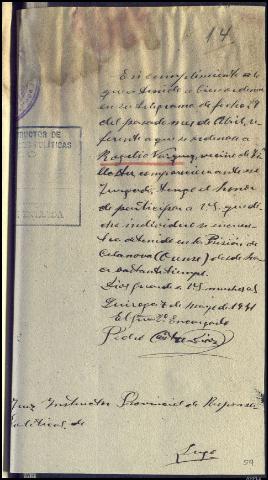 14
En cumplimiento a lo
que
en su telegrama de fecha 29
del pasado mes de Abril, re-
ferente a que se ordenara a
Rogelio Vazquez, vecino de Vi-
compareciera ante ese
Juzgado, tengo el honor
de participar a VS. que di-
cho individuo se encuen-
tra detenido en la Prisión de
Celanova (Orense) desde ha-
ce bastante tiempo.
Dios guarde a VS. muchos a
Quiroga 7 de mayo de 1941
El Encargado
Pedro
RUCTOR DE
POLÍTICAS
Juez Instructor Provincial de Responsa
Políticas, de
Lugo